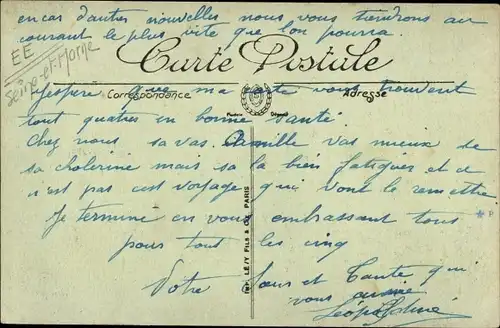 en cas d'autres nouvelles nous vous tiendrons au
courant le plus vite que l'on pourra.
EE
Seine-et-Marne
Carte Postale
Correspondance
Adresse
J'espère que ma carte vous trouvent
tout quatres en bonne santé
Chez nous sa vas. Camille vas mieux de
sa cholerine mais sa la bien fatiguer et ce
n'est pas cest voyage qui vont le remettre
Je termine en vous embrassant tous
pour tout les cinq
Votre Sœur et Tante qui
vous aime
Léopoldine
IMP. LÉVY FILS & CIE PARIS